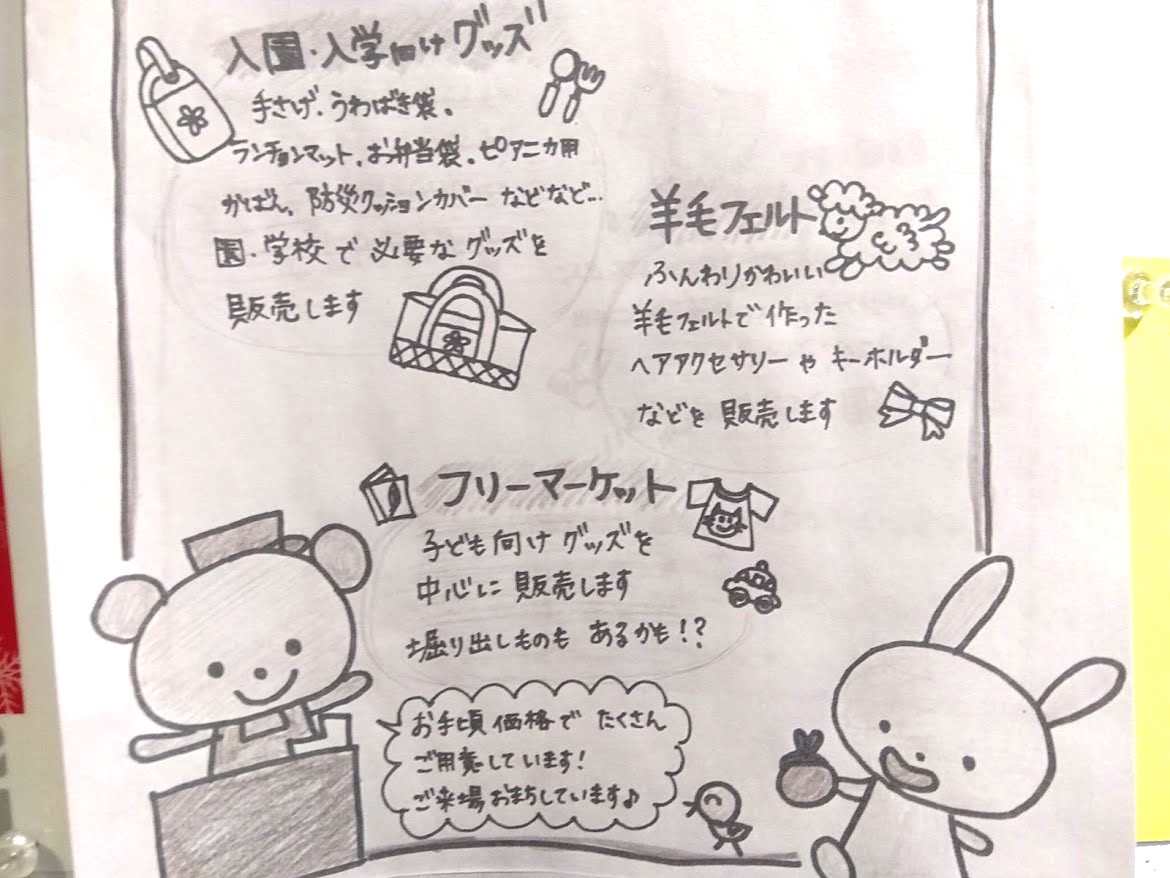 入園・入学向けグッズ
手さげ、うわばき袋、
ランチョンマット、お弁当袋、ピアニカ用
かばん、防災クッションカバー などなど...
園・学校で必要なグッズを
販売します
羊毛フェルト
ふんわりかわいい
羊毛フェルトで作った
ヘアアクセサリーや キーホルダー
などを 販売します
フリーマーケット
子ども向けグッズを
中心に 販売します
堀り出しものも あるかも!?
お手頃価格で たくさん
ご用意しています!
ご来場おまちしています♪